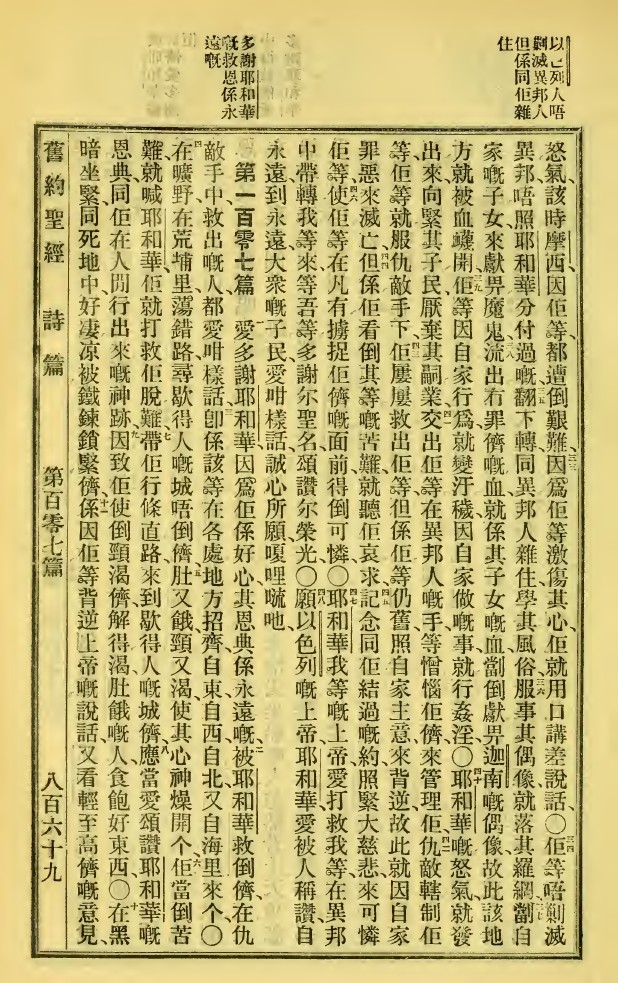 以色列人唔
剿滅異邦人
但係同佢雜
住
多謝耶和華
嘅救恩係永
遠嘅
怒氣、該時摩西因佢等都遭倒艱難、三三因爲佢等激傷其心、佢就用口講差說話、〇三四佢等唔剿滅
異邦、唔照耶和華分付過嘅、三五翻下轉同異邦人雜住、學其風俗、三六服事其偶像、就落其羅網、三七劏自
家嘅子女來獻畀魔鬼、三八流出有罪儕嘅血、就係其子女嘅血、劏倒獻畀迦南嘅偶像、故此該地
方就被血衊開、三九佢等因自家行爲就變汙穢、因自家做嘅事就行姦淫、〇四十耶和華嘅怒氣就發
出來向緊其子民、厭棄其嗣業、四一交出佢等在異邦人嘅手、等憎惱佢儕來管理佢、四二仇敵轄制佢
等、佢等就服仇敵手下、四三佢屢屢救出佢等、但係佢等仍舊照自家主意來背逆、故此就因自家
罪惡來滅亡、四四但係佢看倒其等嘅苦難、就聽佢哀求、四五記念同佢結過嘅約、照緊大慈悲來可憐
佢等、四六使佢等在凡有擄捉佢儕嘅面前得倒可憐、〇四七耶和華我等嘅上帝、愛打救我等、在異邦
中帶轉我等來、等吾等多謝尔聖名、頌讚尔榮光、〇四八願以色列嘅上帝耶和華、愛被人稱讚、自
永遠到永遠、大衆嘅子民、愛咁樣話、誠心所願、嗄哩嚧吔、
第一百零七篇 一愛多謝耶和華、因爲佢係好心、其恩典係永遠嘅、二被耶和華救倒儕、在仇
敵手中救出嘅人、都愛咁樣話、三卽係該等在各處地方招齊、自東自西自北又自海里來个、〇
四在曠野在荒埔里蕩錯路、尋歇得人嘅城唔倒儕、五肚又餓、頸又渴、使其心神燥開个、六佢當倒苦
難、就喊耶和華、佢就打救佢脫難、七帶佢行條直路、來到歇得人嘅城儕、八應當愛頌讚耶和華嘅
恩典、同佢在人間行出來嘅神跡、九因致佢使倒頸渴儕解得渴、肚餓嘅人食飽好東西、〇十在黑
暗坐緊、同死地中好凄凉、被鐵鍊鎖緊儕、十一係因佢等背逆上帝嘅說話、又看輕至高儕嘅意見、
舊約聖經 詩篇 第百零七篇 八百六十九